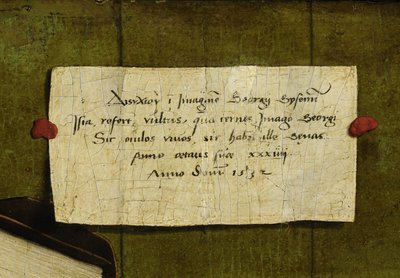 Δίστιχον ĩ Imaginẽ Georgij Gysenii
Ista refert vultus, quã cernis, Imago Georgi
Sic oculos viuos, sic habet ille Genas
Anno ætatis suæ xxxiiij
Anno dom̃ 1532